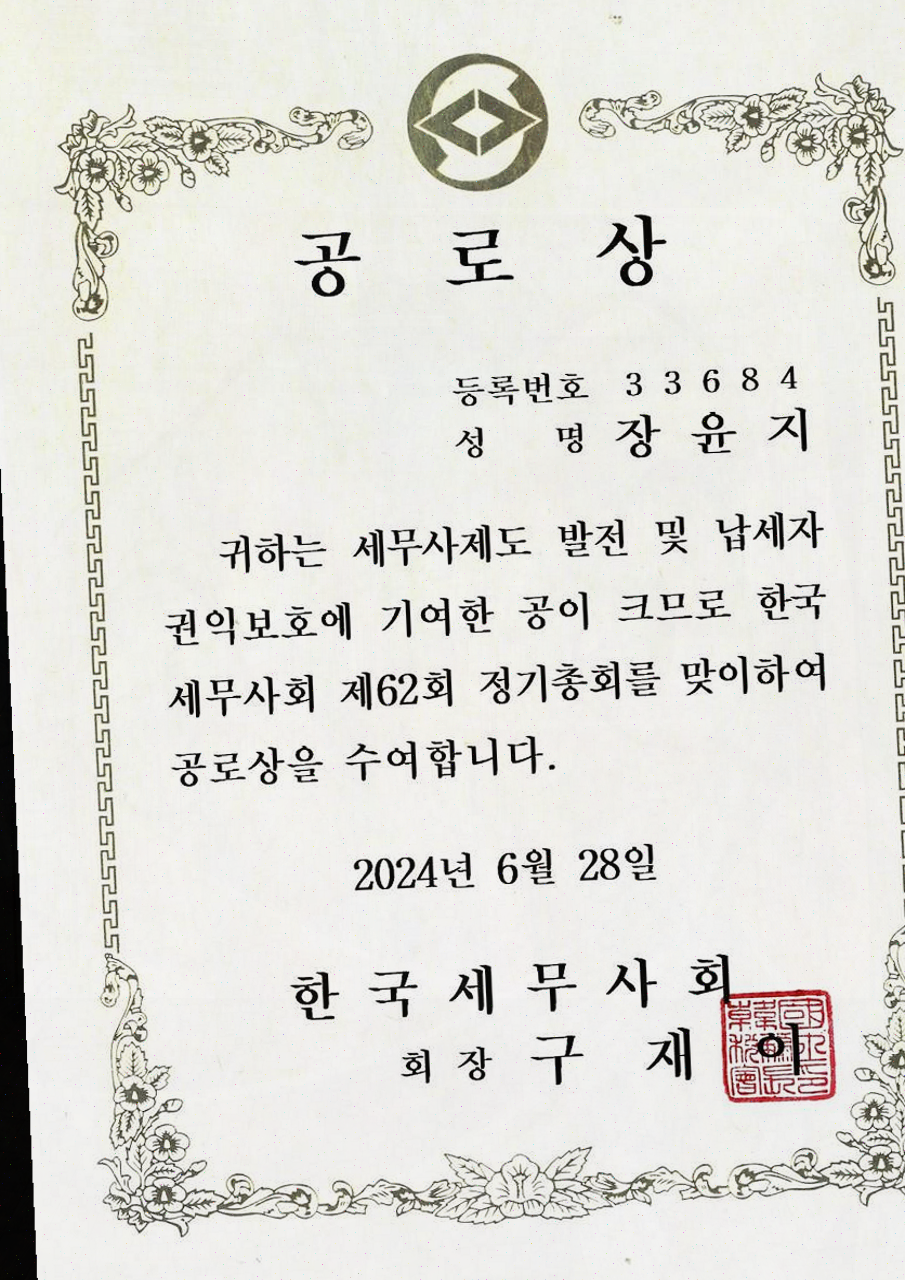 공로상
등록번호 33684
성 명 장윤지
귀하는 세무사제도 발전 및 납세자
권익보호에 기여한 공이 크므로 한국
세무사회 제62회 정기총회를 맞이하여
공로상을 수여합니다.
2024년 6월 28일
한국세무사회
회장 구재이